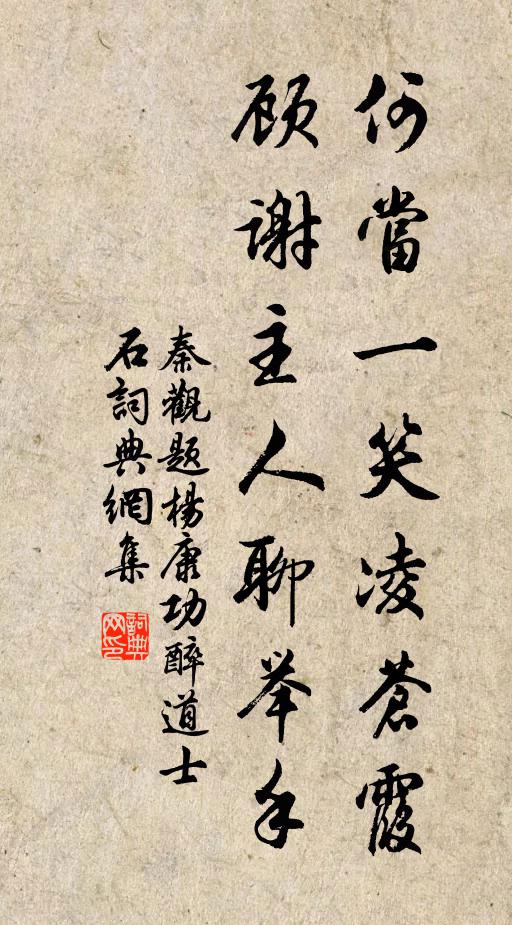 何當一笑凌蒼霞
顾謝主人聊举手
秦觀题楊康功醉道士
石詞典網集
詞典
网印